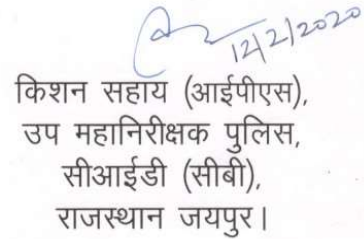 12/2/2020
किशन सहाय (आईपीएस),
उप महानिरीक्षक पुलिस,
सीआईडी (सीबी),
राजस्थान जयपुर।